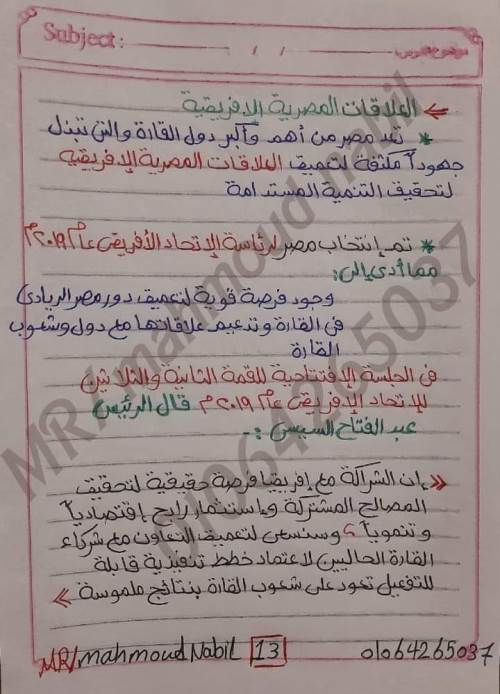 Subject:
/ /
موضوع الدرس:
العلاقات المصرية الإفريقية
* تعد مصر من أهم وأكبر دول القارة والتي تبذل
جهوداً مكثفة لتعميق العلاقات المصرية الإفريقية
لتحقيق التنمية المستدامة
* تم إنتخاب مصر لرئاسة الإتحاد الأفريقي عام ٢٠١٩م
مما أدى إلى:
وجود فرصة قوية لتعميق دور مصر الريادي
في القارة وتدعيم علاقاتها مع دول وشعوب
القارة
في الجلسة الإفتتاحية للقمة الثانية والثلاثين
للإتحاد الإفريقي عام ٢٠١٩م قال الرئيس
عبد الفتاح السيسي :-
« إن الشراكة مع إفريقيا فرصة حقيقية لتحقيق
المصالح المشتركة وإستثمار رابح إقتصادياً
وتنموياً، وسنسعى لتعميق التعاون مع شركاء
القارة الحاليين لاعتماد خطط تنفيذية قابلة
للتفعيل تعود على شعوب القارة بنتائج ملموسة »
MR/mahmoud Nabil 13 01064265037
MR/mahmoud nabil
01064265037